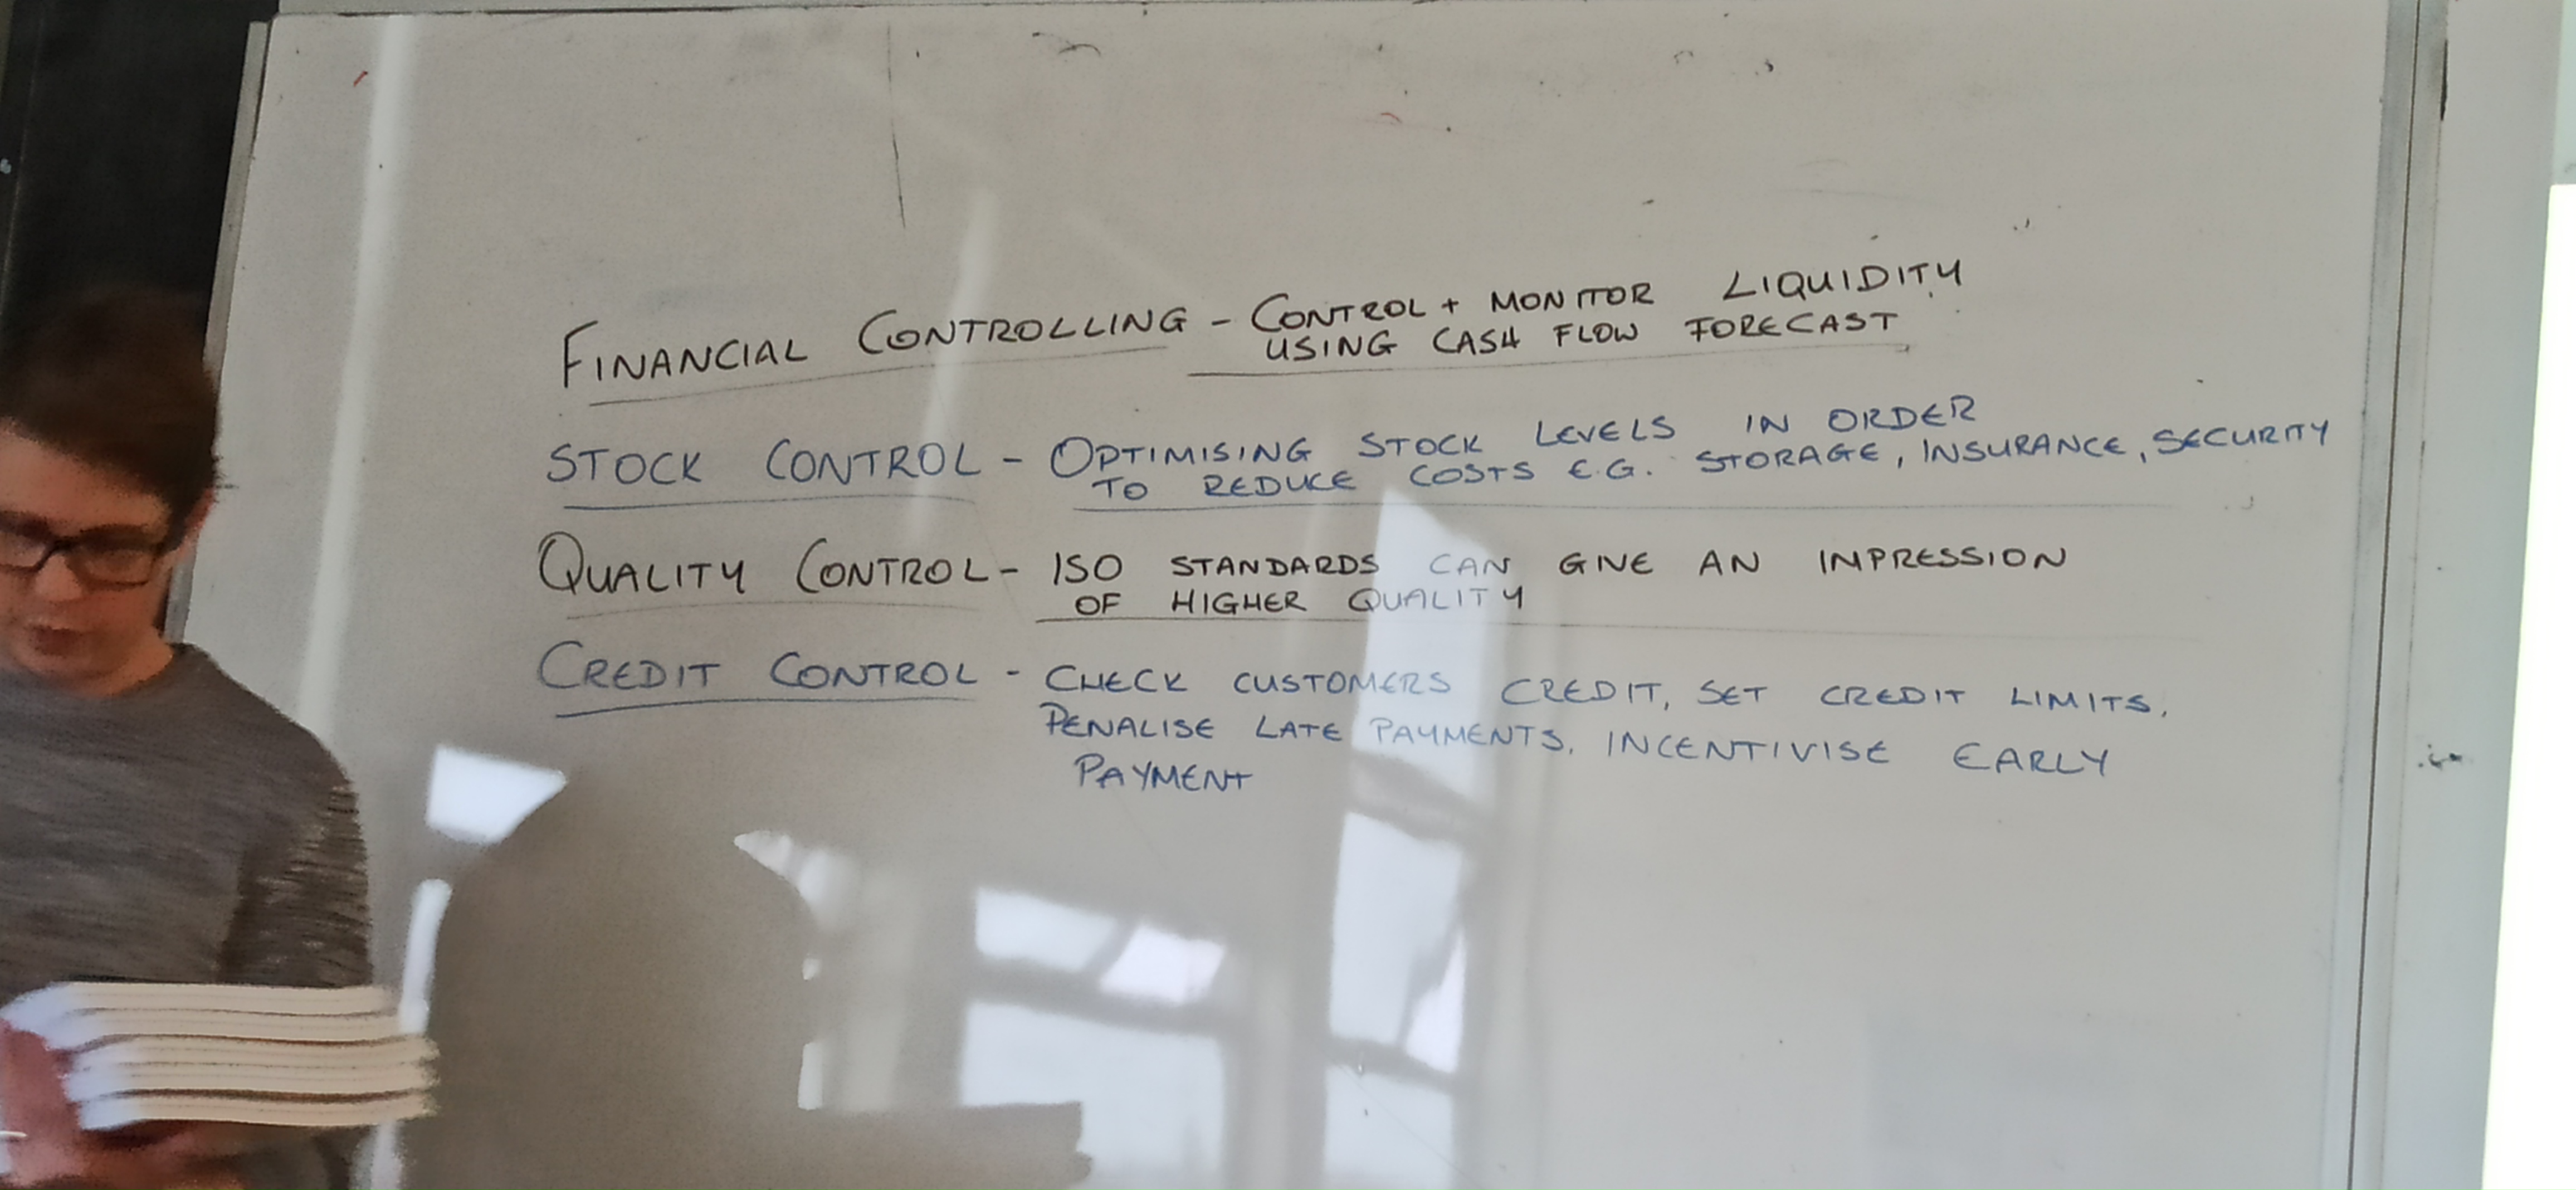 FINANCIAL CONTROLLING - CONTROL + MONITOR LIQUIDITY
USING CASH FLOW FORECAST
STOCK CONTROL - OPTIMISING STOCK LEVELS IN ORDER
TO REDUCE COSTS E.G. STORAGE, INSURANCE, SECURITY
QUALITY CONTROL - ISO STANDARDS CAN GIVE AN IMPRESSION
OF HIGHER QUALITY
CREDIT CONTROL - CHECK CUSTOMERS CREDIT, SET CREDIT LIMITS,
PENALISE LATE PAYMENTS, INCENTIVISE EARLY
PAYMENT